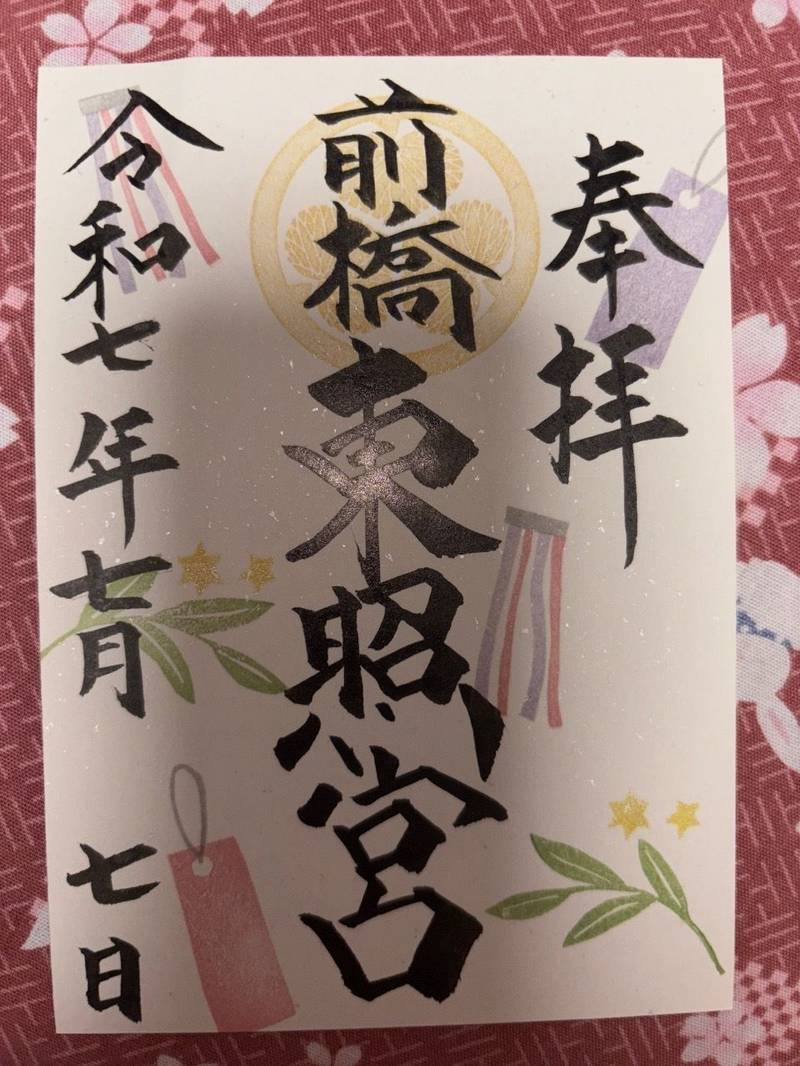 奉拝
前橋東照宮
令和七年七月七日